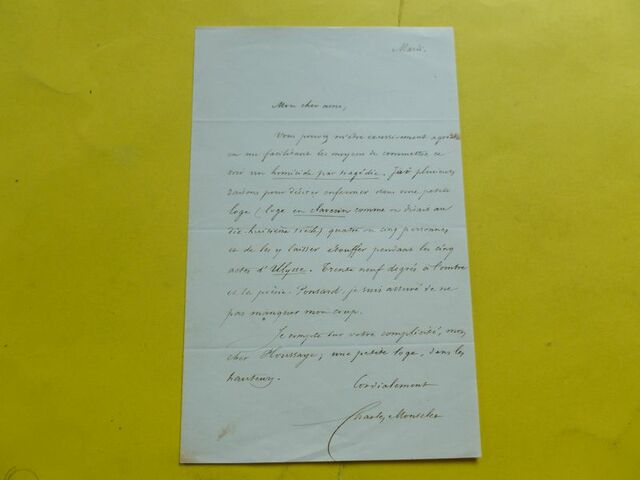 Mardi.
Mon cher ami,
Vous pouvez m'être excessivement agréable
en me facilitant les moyens de commettre ce
soir un homicide par tragédie. J'ai plusieurs
raisons pour désirer enfermer dans une petite
loge (loge en clavecin comme on disait au
dix-huitième siècle) quatre ou cinq personnes
et de les y laisser étouffer pendant les cinq
actes d'Ulysse. Trente neuf degrés à l'ombre
et la poésie Ponsard, je suis assuré de ne
pas manquer mon coup.
Je compte sur votre complicité, mon
cher Houssaye; une petite loge, dans les
hauteurs.
Cordialement
Charles Monselet